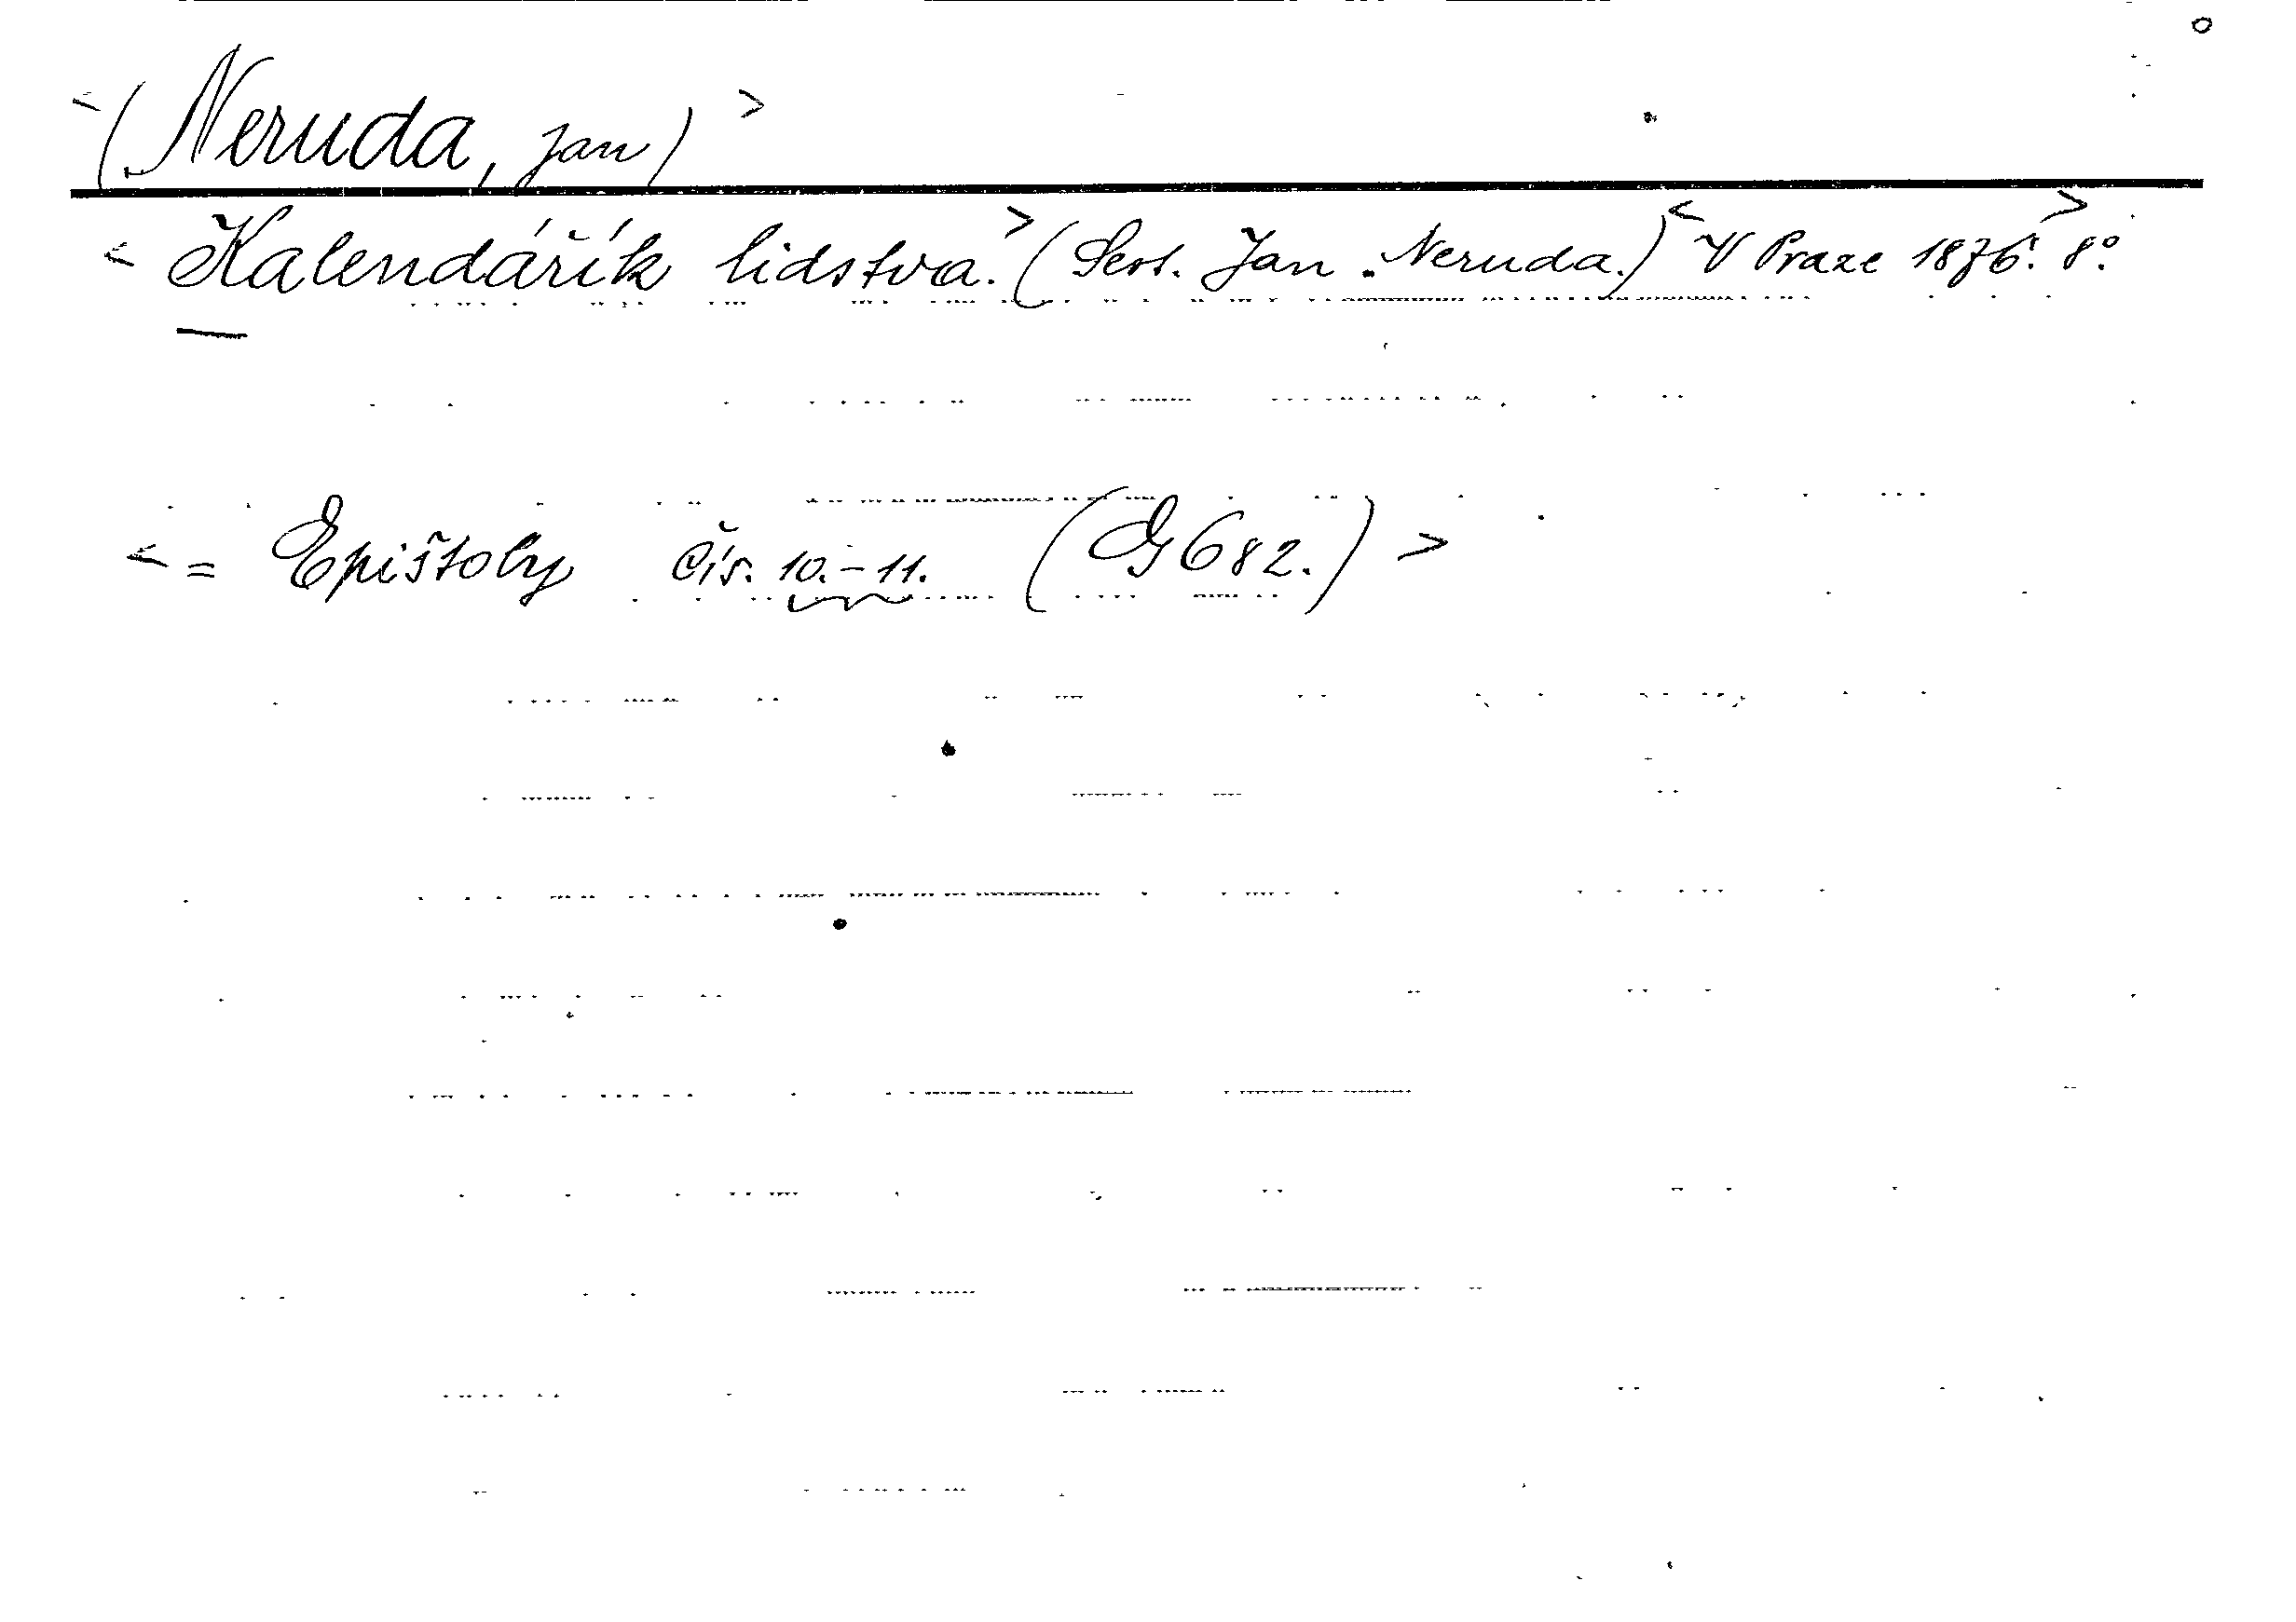 <(Neruda, Jan)>
<Kalendářík lidstva.>(Sest. Jan Neruda.)<V Praze 1876. 8°.>
<= Epištoly čís. 10.-11. (G 682.)>